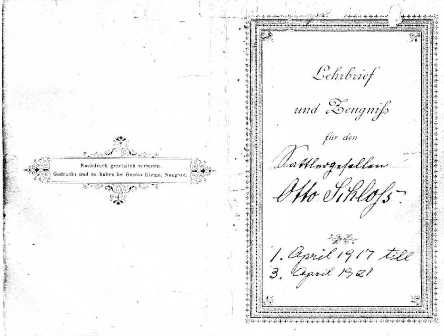 Nachdruck gesetzlich verboten.
Gedruckt und zu haben bei
Lehrbrief
und Zeugniß
für den
Sattlergesellen
Otto Schloss
1. April 1917 till
3. April 1921